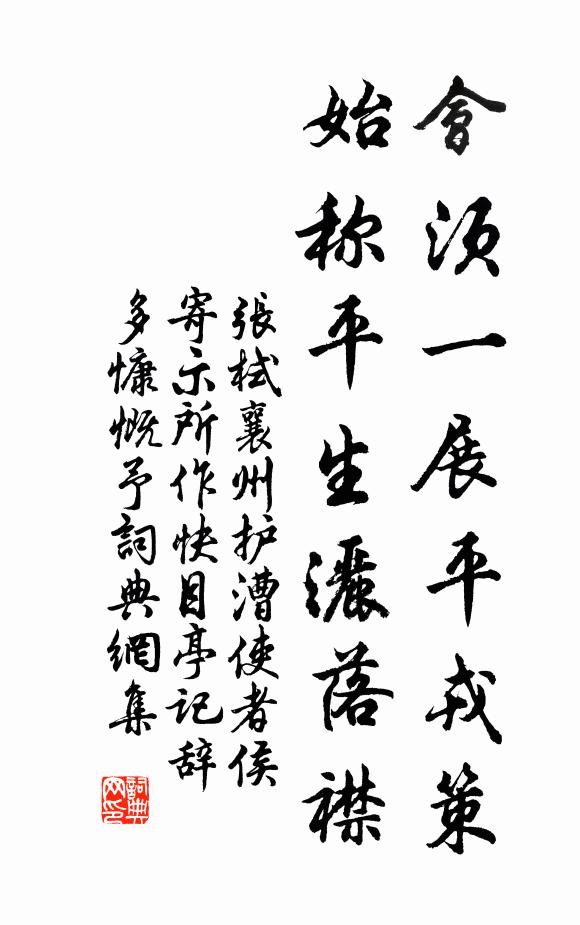 會須一展平戎策
始称平生灑落襟
張栻襄州护漕使者侯
寄示所作快目亭记辞
多慷慨予詞典網集
詞典网印